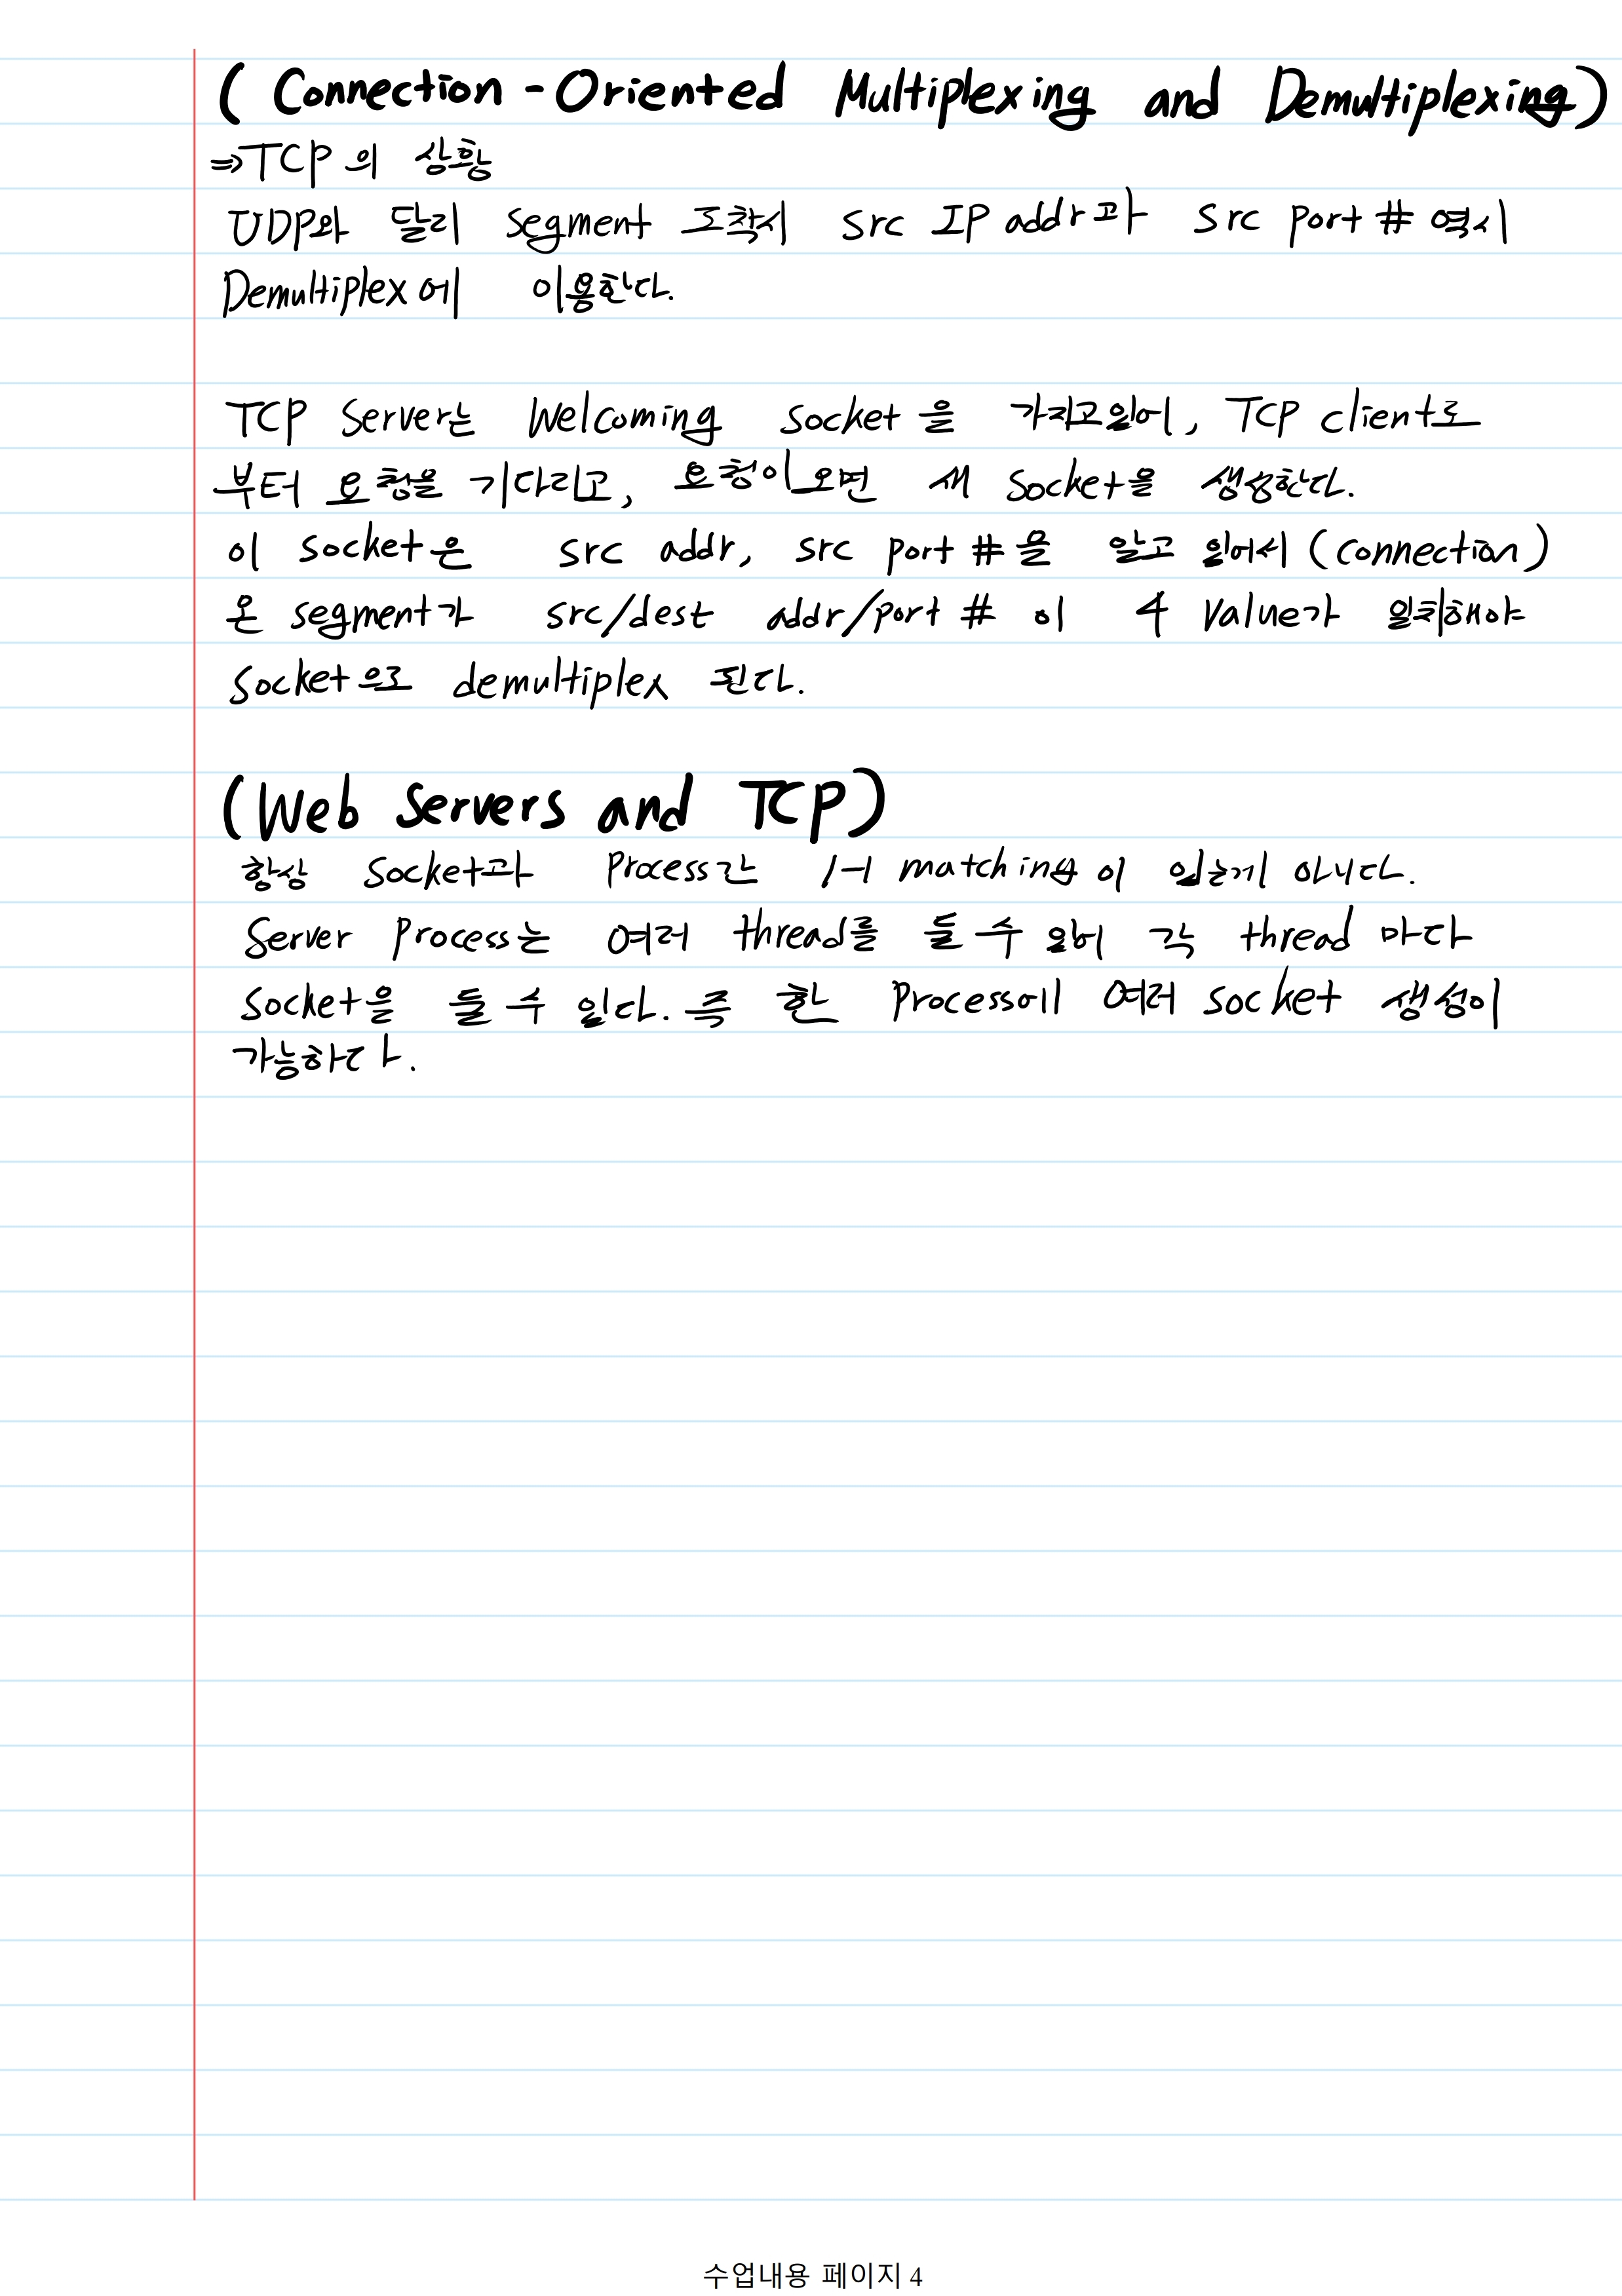 ( Connection - Oriented Multiplexing and Demultiplexing)
⇒TCP의 상황
UDP와 달리 segment 도착시 src IP addr과 src port # 역시
Demultiplex에 이용한다.
TCP Server는 Welcoming socket을 가지고있어, TCP client로
부터 요청을 기다리고, 요청이오면 새 socket을 생성한다.
이 socket은 src addr, src port #을 알고 있어서 (connection)
온 segment가 src/dest addr/port # 이 4 value가 일치해야
socket으로 demultiplex 된다.
(Web Servers and TCP)
항상 socket과 Process간 1-1 matching이 있는게 아니다.
Server Process는 여러 thread를 둘 수 있어 각 thread 마다
Socket을 둘 수 있다. 즉 한 Process에 여러 socket 생성이
가능하다.
수업내용 페이지 4